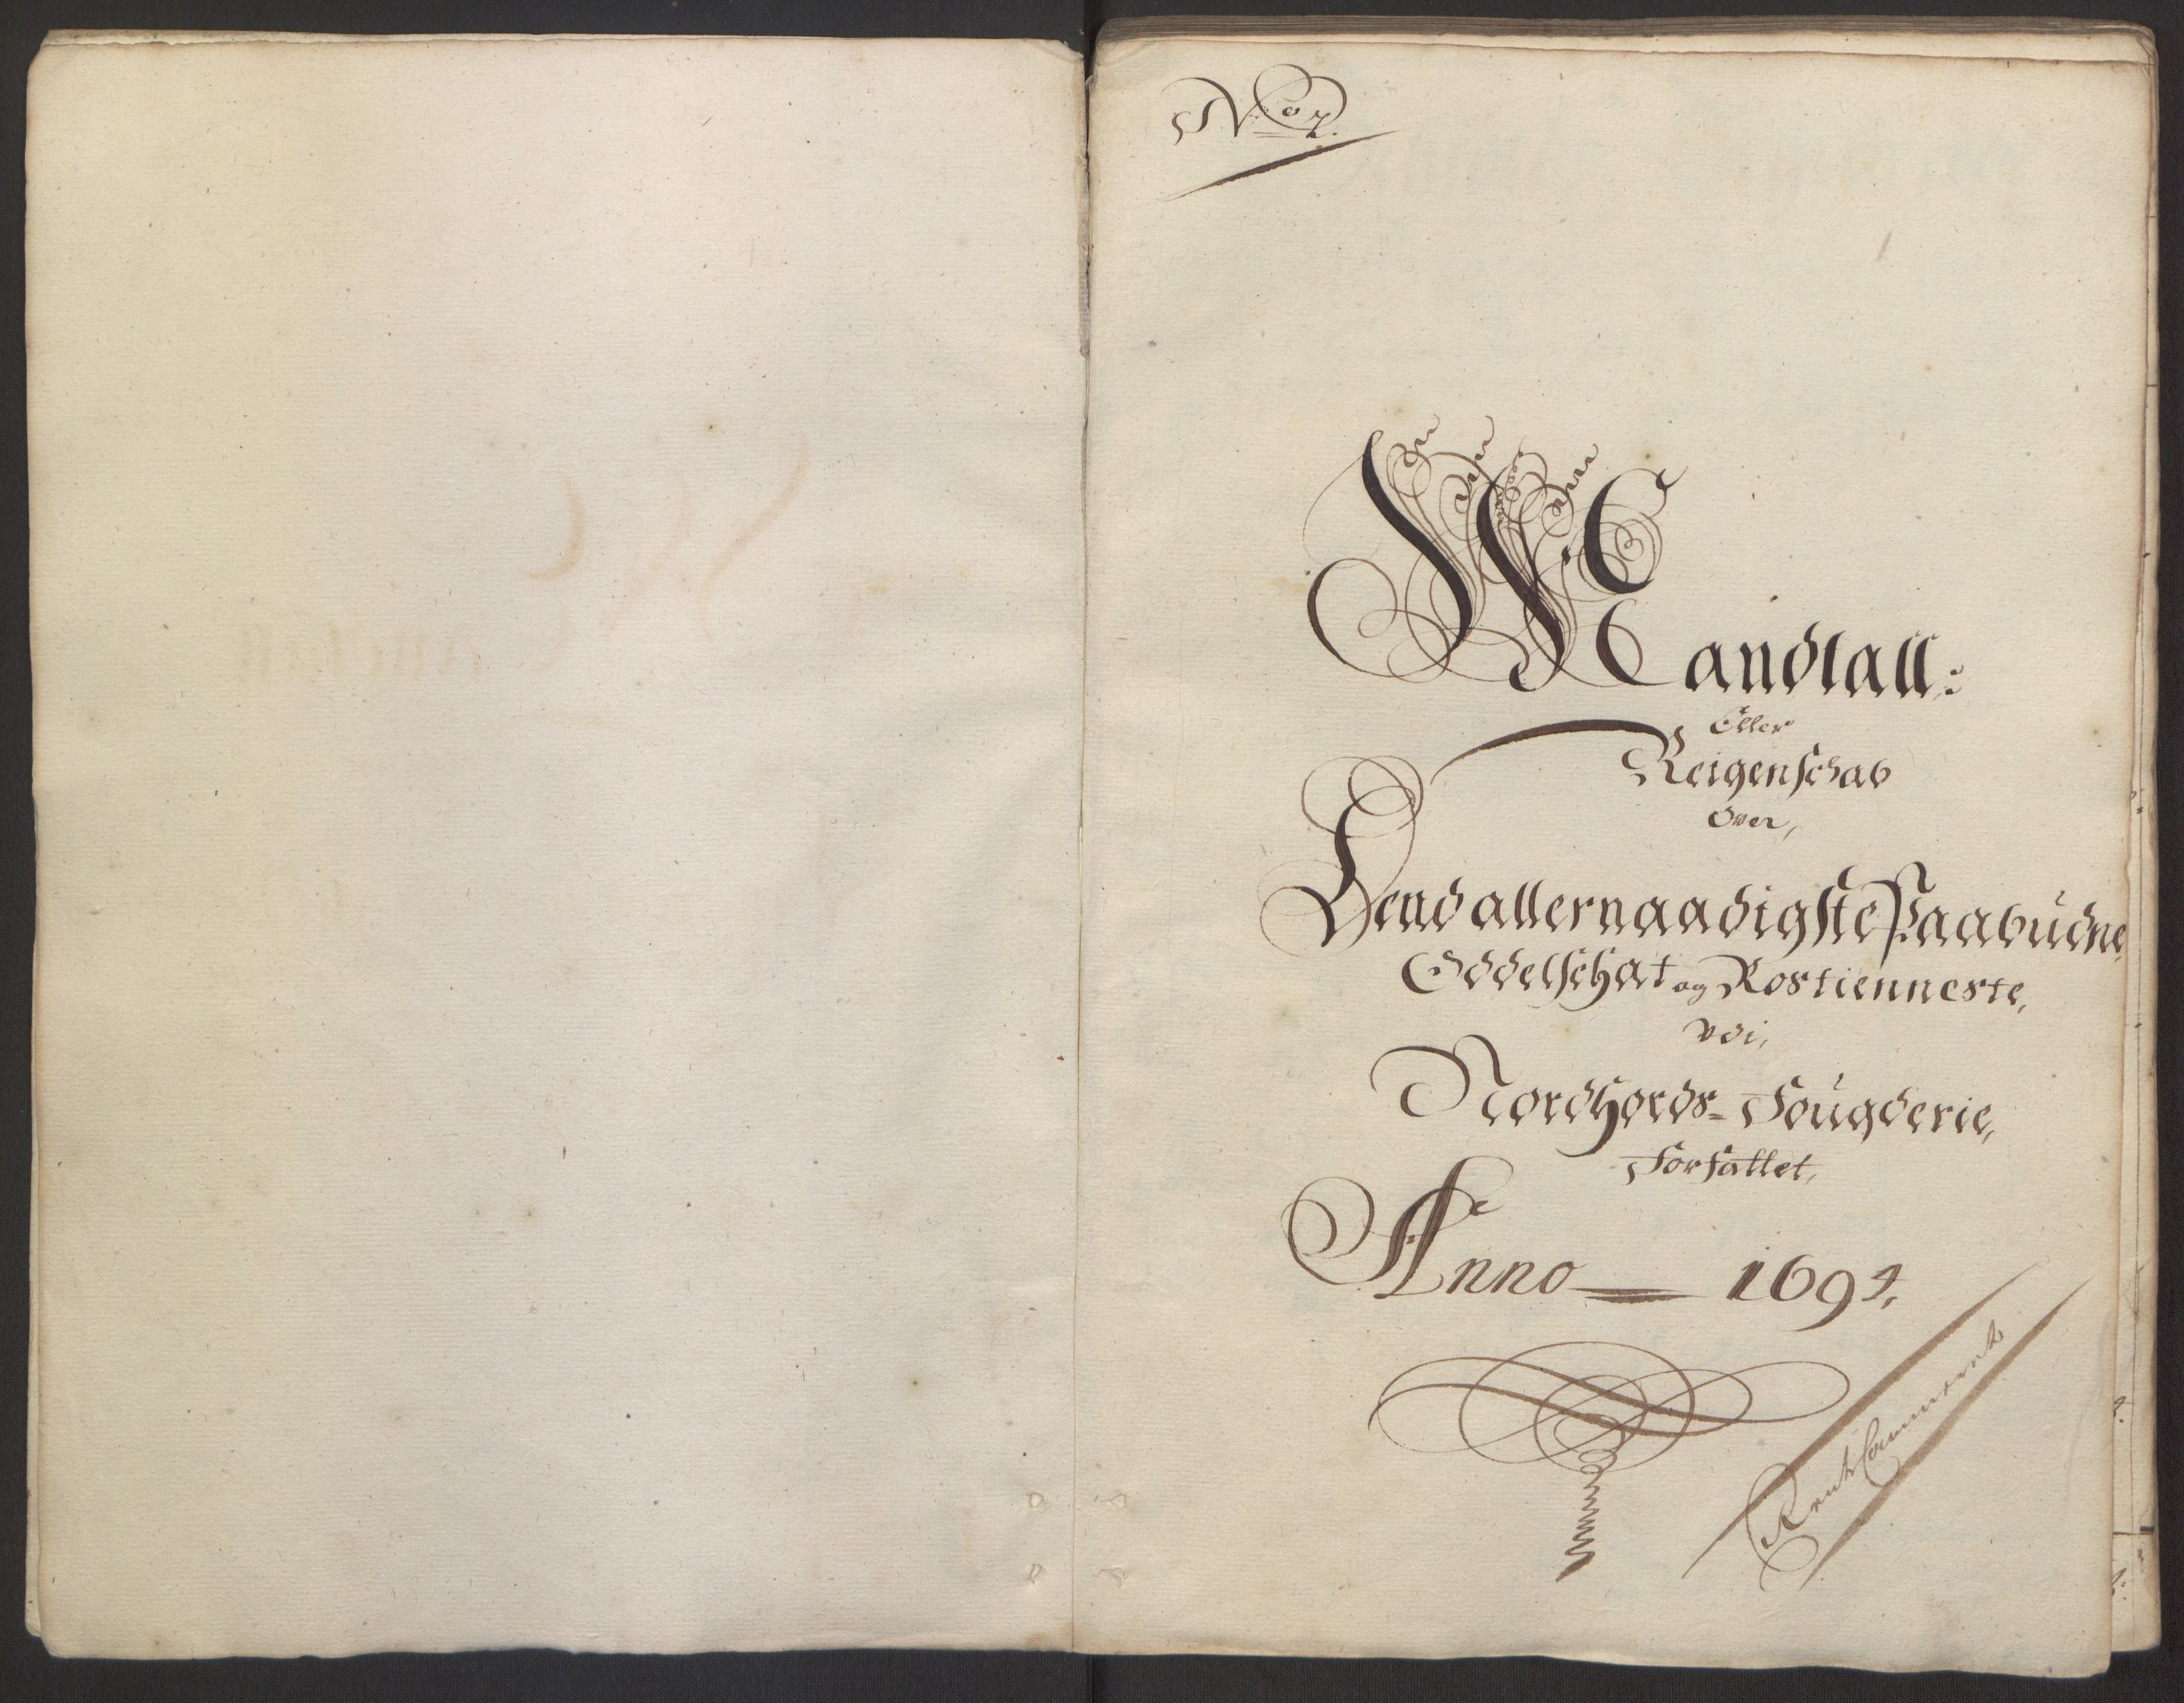 No 7.
Mandtall:
Eller
Reigenschab
Over,
Dend allernaadigste Paabudne
Oddelschat og Rostienneste,
vdi,
Nordhords-Fougderie,
Forfattet,
Anno — 1694.
Rente Cammeret